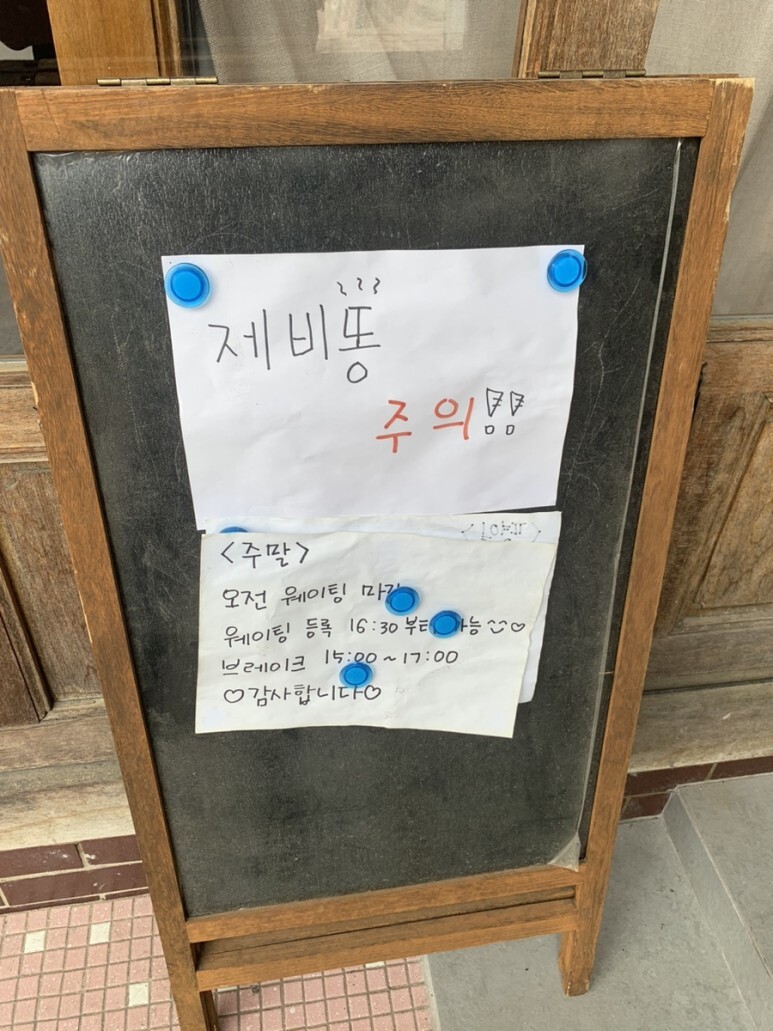 제비똥
주의!!
<주말>
오전 웨이팅
웨이팅 등록 16:30
브레이크 15:00~17:00
♡감사합니다♡